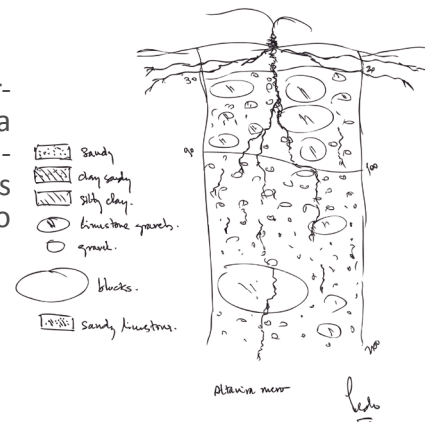 r-
a
-
s
o
sandy
clay sandy
silty clay.
limestone gravels.
gravel.
blocks.
sandy limestone.
30
30
90
100
200
Altavira mero